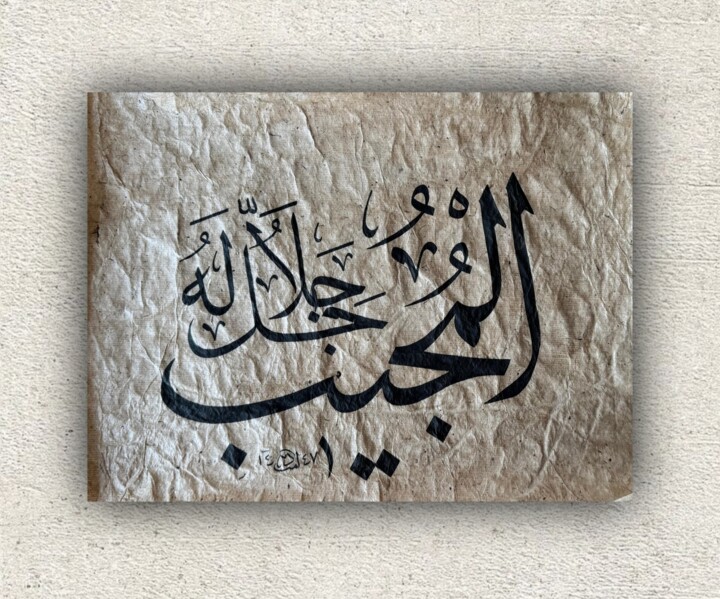 الْمُجِيبُ
جَلَّ جَلَالُهُ
١٤٤٧